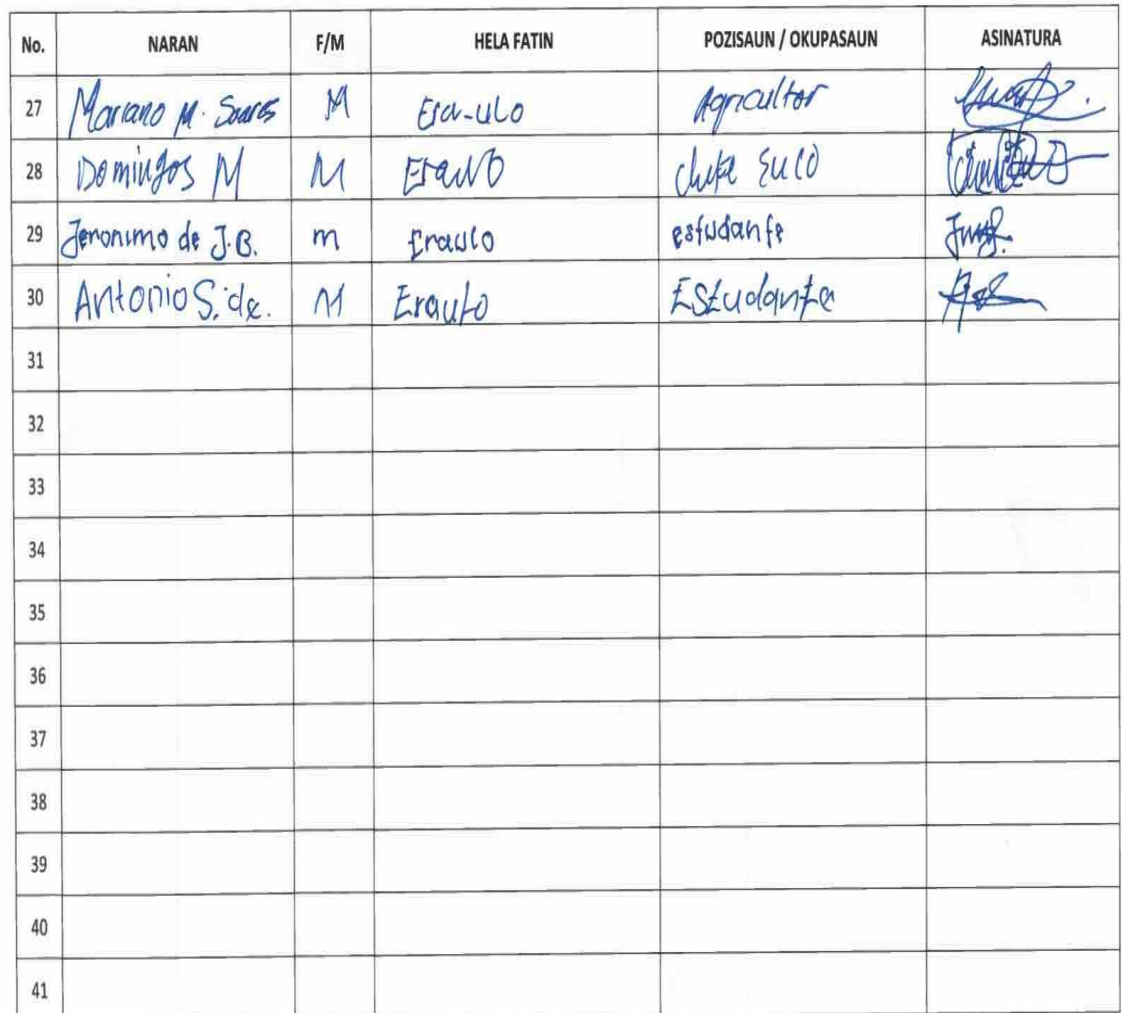 No. NARAN F/M HELA FATIN POZISAUN / OKUPASAUN ASINATURA
27 Mariano M. Soares M Era-ulo Agricultor
28 Domingos M M Eraulo chefe suco
29 Jeronimo de J.B. m Eraulo estudante
30 Antonio S. de. M Eraulo Estudante
31
32
33
34
35
36
37
38
39
40
41